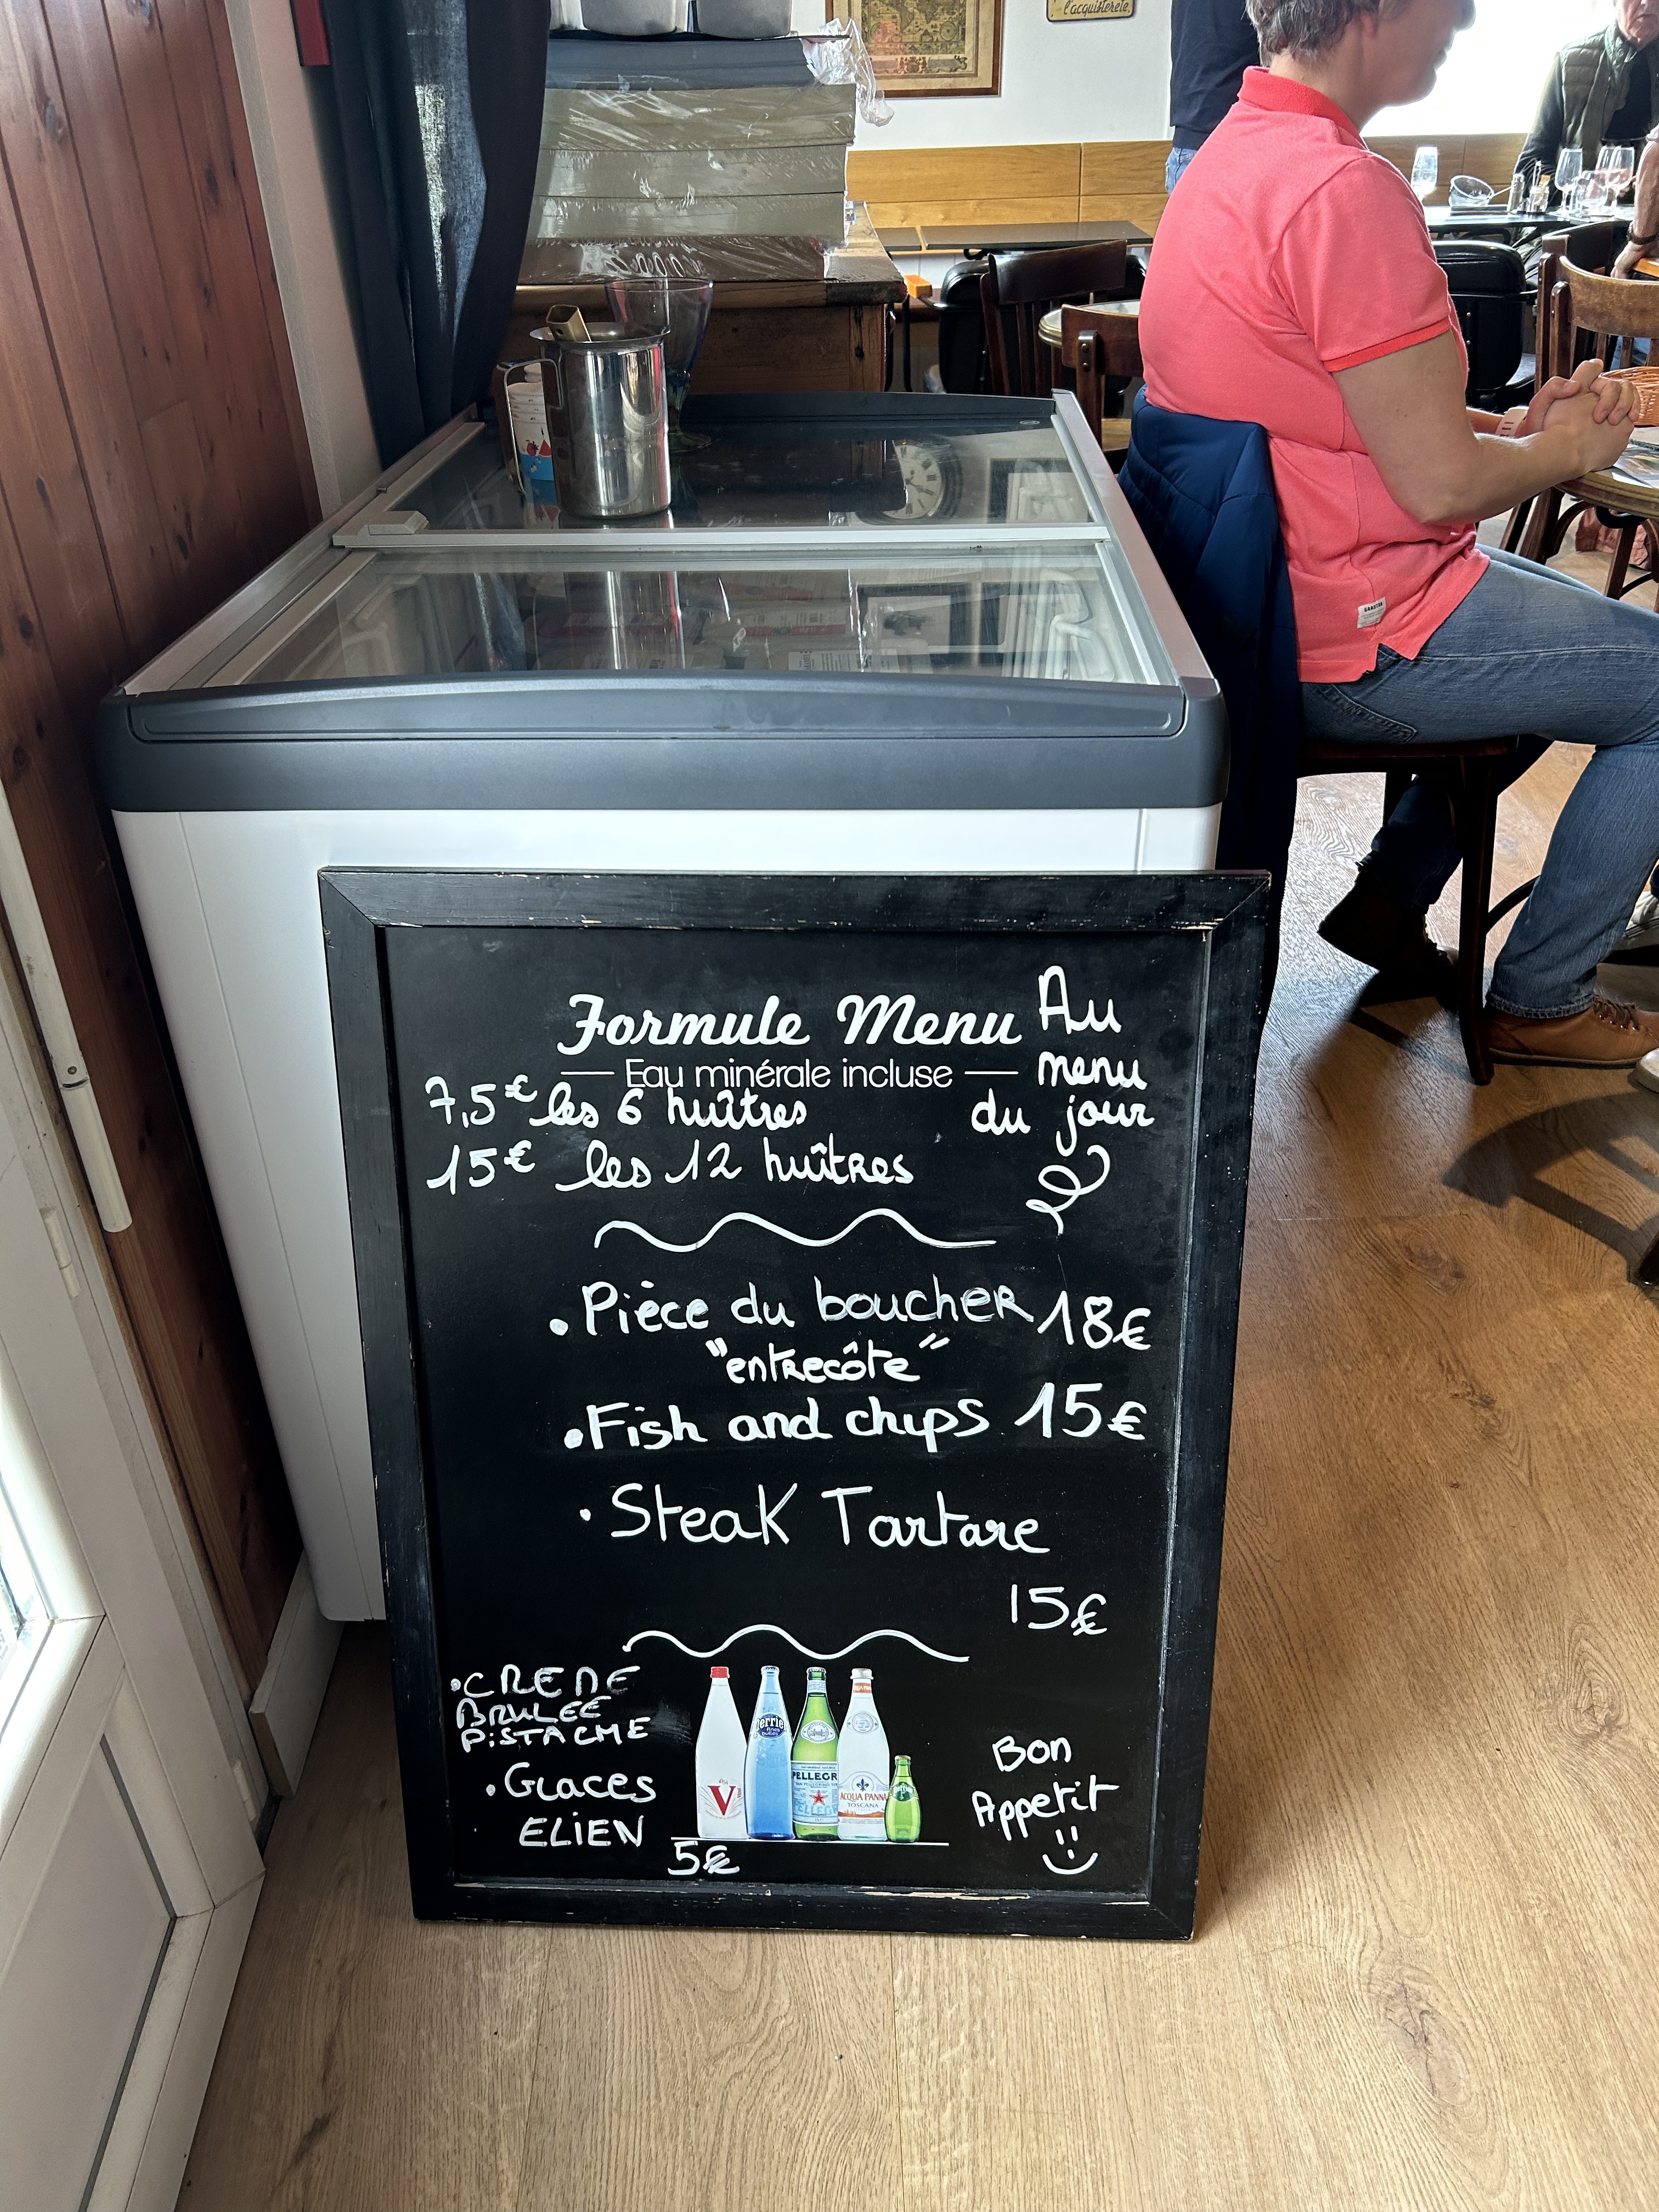 l'acquisterete,
Formule Menu
Eau minérale incluse
Au
menu
du jour
7,5€ les 6 huîtres
15€ les 12 huîtres
• Pièce du boucher 18€
"entrecôte"
• Fish and chips 15€
• Steak Tartare
15€
• CREME
BRULEE
PiSTACHE
• Glaces
ELIEN
5€
V
Perrier
PELLEGR
ACQUA PANNA
TOSCANA
Bon
Appetit